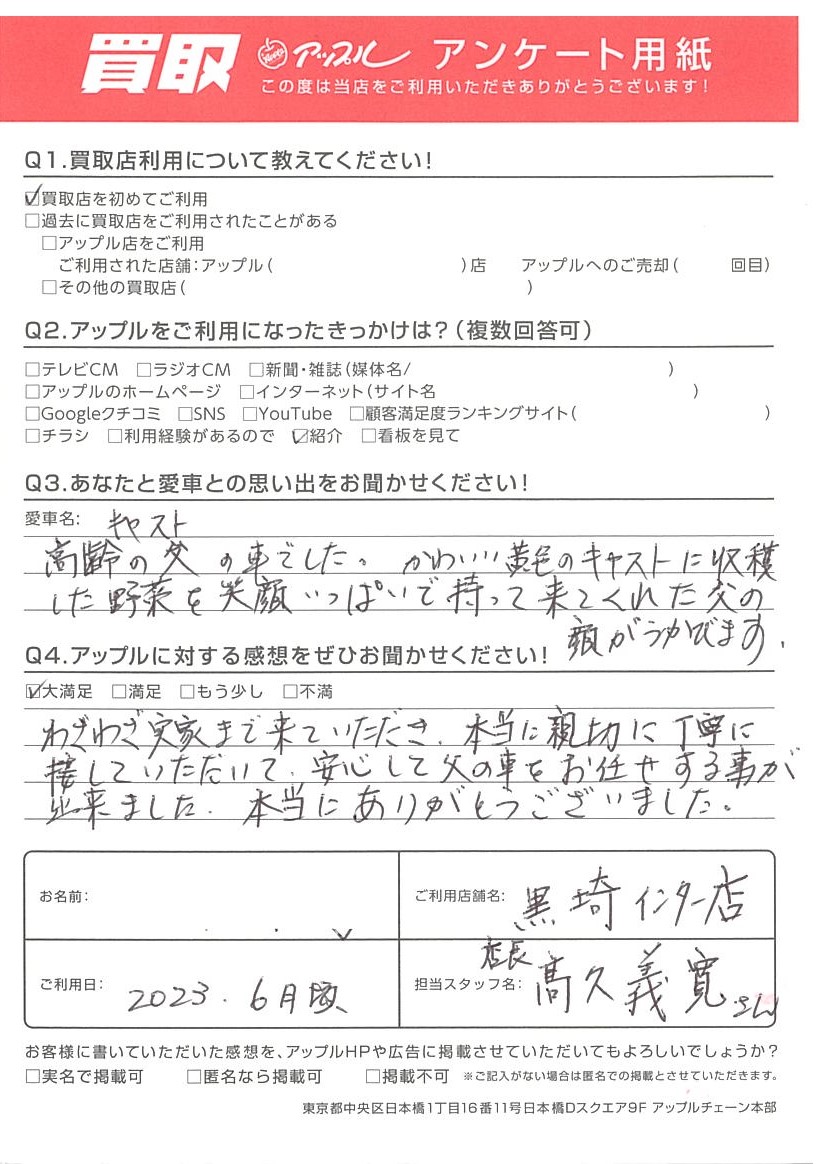 買取 アップル アンケート用紙
この度は当店をご利用いただきありがとうございます!
Q1.買取店利用について教えてください!
☑買取店を初めてご利用
□過去に買取店をご利用されたことがある
□アップル店をご利用
ご利用された店舗:アップル( )店 アップルへのご売却( 回目)
□その他の買取店( )
Q2.アップルをご利用になったきっかけは?(複数回答可)
□テレビCM □ラジオCM □新聞・雑誌(媒体名/ )
□アップルのホームページ □インターネット(サイト名 )
□Googleクチコミ □SNS □YouTube □顧客満足度ランキングサイト( )
□チラシ □利用経験があるので ☑紹介 □看板を見て
Q3.あなたと愛車との思い出をお聞かせください!
愛車名: キャスト
高齢の父の車でした。かわいい黄色のキャストに収穫
した野菜を笑顔いっぱいで持って来てくれた父の
顔がうかびます。
Q4.アップルに対する感想をぜひお聞かせください!
☑大満足 □満足 □もう少し □不満
わざわざ実家まで来ていただき、本当に親切に丁寧に
接していただいて、安心して父の車をお任せする事が
出来ました。本当にありがとうございました。
お名前:
ご利用店舗名: 黒埼インター店
ご利用日: 2023.6月頃
担当スタッフ名: 店長 髙久義寛さん
お客様に書いていただいた感想を、アップルHPや広告に掲載させていただいてもよろしいでしょうか?
□実名で掲載可 □匿名なら掲載可 □掲載不可 ※ご記入がない場合は匿名での掲載とさせていただきます。
東京都中央区日本橋1丁目16番11号日本橋Dスクエア9F アップルチェーン本部